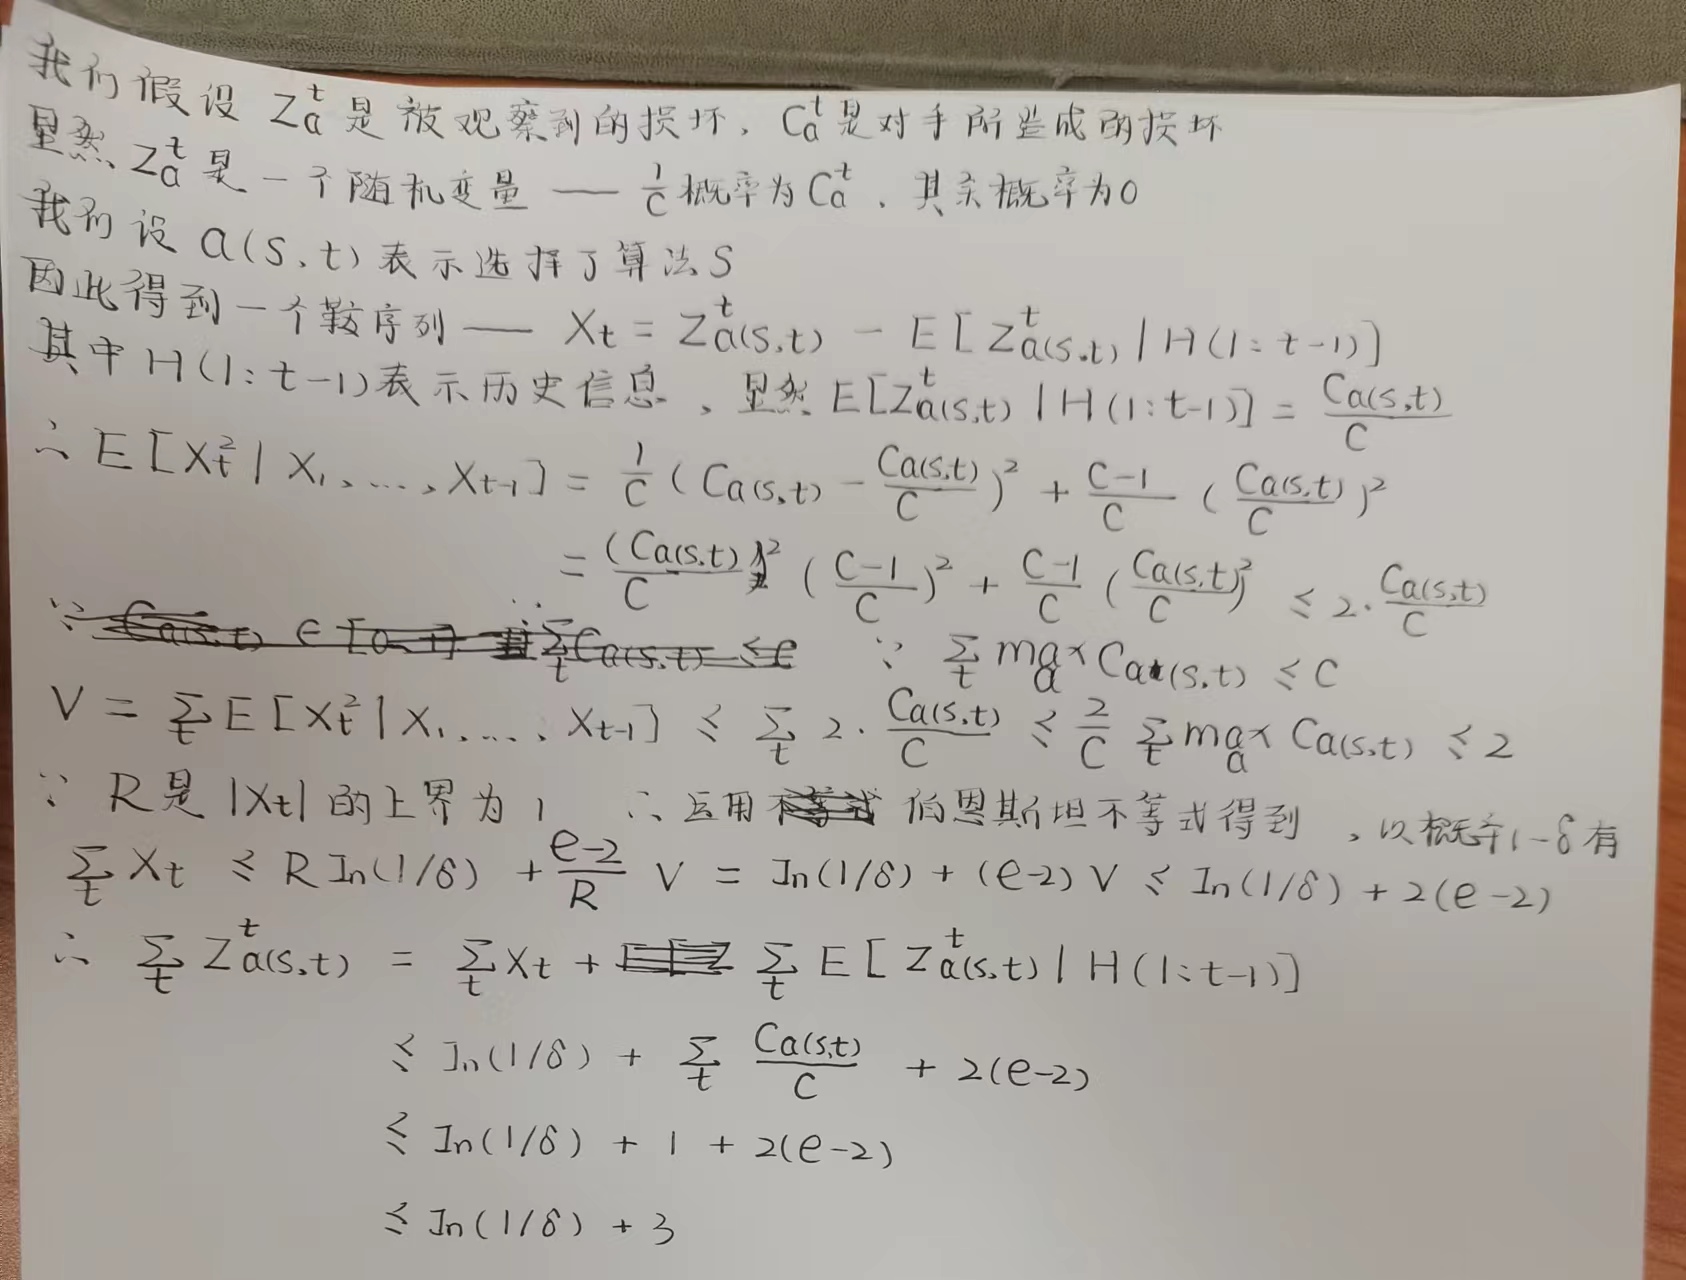 我们假设 Z_a^t 是被观察到的损坏, C_a^t 是对手所造成的损坏
显然 Z_a^t 是一个随机变量 —— 1/C 概率为 C_a^t , 其余概率为0
我们设 a(s,t) 表示选择了算法S
因此得到一个鞅序列 —— X_t = Z_{a(s,t)}^t - E[Z_{a(s,t)}^t | H(1:t-1)]
其中 H(1:t-1) 表示历史信息, 显然 E[Z_{a(s,t)}^t | H(1:t-1)] = C_{a(s,t)}/C
∴ E[X_t^2 | X_1, ..., X_{t-1}] = 1/C (C_{a(s,t)} - C_{a(s,t)}/C)^2 + (C-1)/C (C_{a(s,t)}/C)^2
= (C_{a(s,t)})^2/C ((C-1)/C)^2 + (C-1)/C (C_{a(s,t)}/C)^2 ≤ 2·C_{a(s,t)}/C
∵ ∑_t max_a C_{a(s,t)} ≤ C
V = ∑_t E[X_t^2 | X_1, ..., X_{t-1}] ≤ ∑_t 2·C_{a(s,t)}/C ≤ 2/C ∑_t max_a C_{a(s,t)} ≤ 2
∵ R是 |X_t| 的上界为 1 ∴ 运用 伯恩斯坦不等式得到 , 以概率1-δ有
∑_t X_t ≤ R ln(1/δ) + (e-2)/R V = ln(1/δ) + (e-2) V ≤ ln(1/δ) + 2(e-2)
∴ ∑_t Z_{a(s,t)}^t = ∑_t X_t + ∑_t E[Z_{a(s,t)}^t | H(1:t-1)]
≤ ln(1/δ) + ∑_t C_{a(s,t)}/C + 2(e-2)
≤ ln(1/δ) + 1 + 2(e-2)
≤ ln(1/δ) + 3